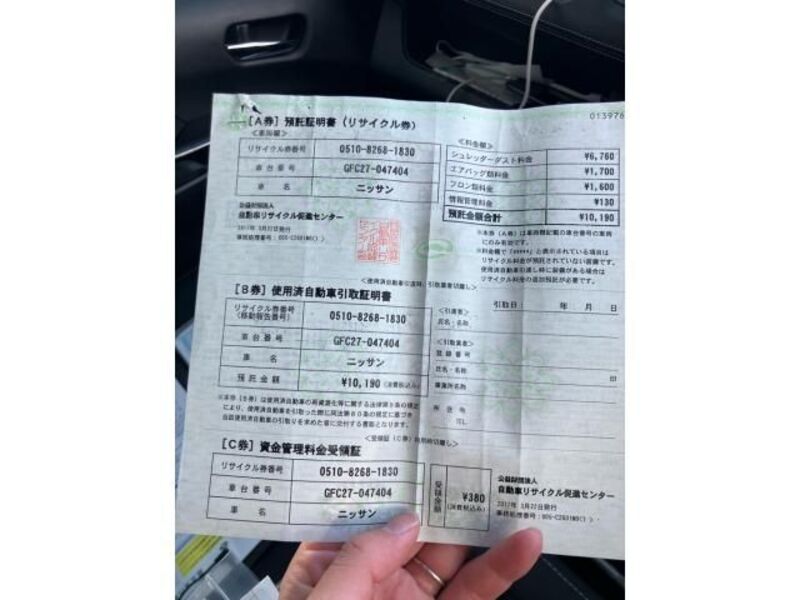 013976
[A券] 預託証明書 (リサイクル券)
<車両欄>
リサイクル券番号 0510-8268-1830
車台番号 GFC27-047404
車名 ニッサン
<料金欄>
シュレッダーダスト料金 ¥6,760
エアバッグ類料金 ¥1,700
フロン類料金 ¥1,600
情報管理料金 ¥130
預託金額合計 ¥10,190
公益財団法人
自動車リサイクル促進センター
2017年 3月22日発行
※本券 (A券) は車両欄記載の車台番号の車両
にのみ有効です。
※料金欄で「*****」と表示されている項目は
リサイクル料金が預託されていない装備です。
使用済自動車引渡し時に装備がある場合は
リサイクル料の追加預託が必要です。
[B券] 使用済自動車引取証明書
リサイクル券番号
(移動報告番号) 0510-8268-1830
車台番号 GFC27-047404
車名 ニッサン
預託金額 ¥10,190 (消費税込み)
引取日: 年 月 日
<引渡者>
氏名・名称
<引取業者>
登録番号
氏名・名称
印
事業所名称
所在地
TEL
※本券 (B券) は使用済自動車の再資源化等に関する法律第9条の規定
により、使用済自動車を引取った際に同法第80条の規定に基づき
当該使用済自動車の引取りを求めた者に交付する書面となります。
[C券] 資金管理料金受領証
リサイクル券番号 0510-8268-1830
車台番号 GFC27-047404
車名 ニッサン
受領金額 ¥380
(消費税込み)
公益財団法人
自動車リサイクル促進センター
2017年 3月22日発行